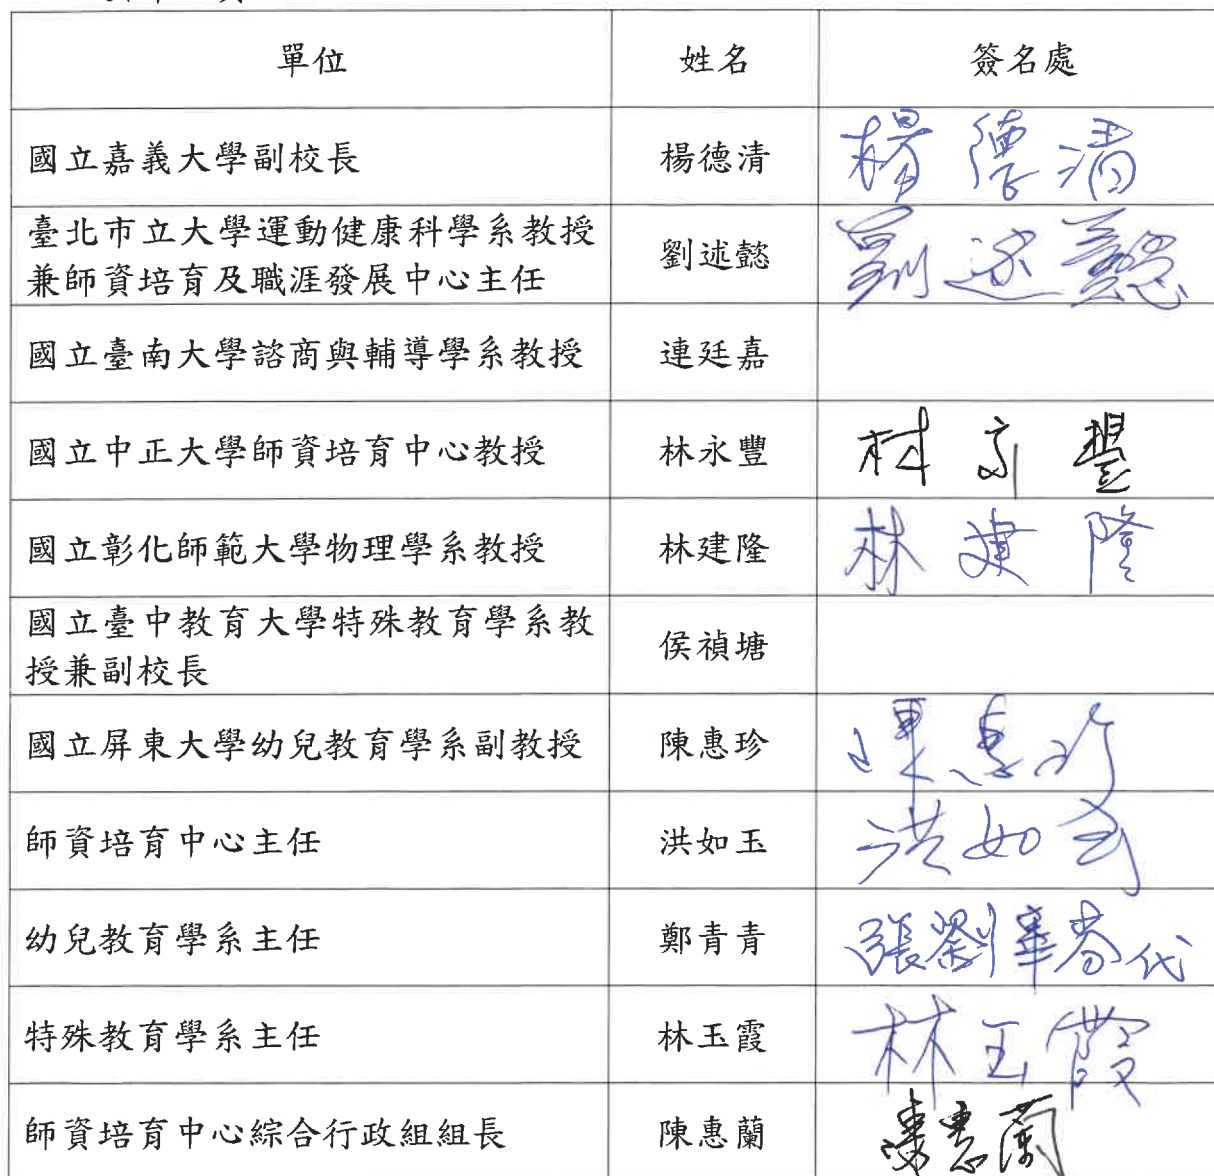 單位 姓名 簽名處
國立嘉義大學副校長 楊德清 楊德清
臺北市立大學運動健康科學系教授
兼師資培育及職涯發展中心主任 劉述懿 劉述懿
國立臺南大學諮商與輔導學系教授 連廷嘉
國立中正大學師資培育中心教授 林永豐 林永豐
國立彰化師範大學物理學系教授 林建隆 林建隆
國立臺中教育大學特殊教育學系教
授兼副校長 侯禎塘
國立屏東大學幼兒教育學系副教授 陳惠珍 陳惠珍
師資培育中心主任 洪如玉 洪如玉
幼兒教育學系主任 鄭青青 張劉華春代
特殊教育學系主任 林玉霞 林玉霞
師資培育中心綜合行政組組長 陳惠蘭 陳惠蘭